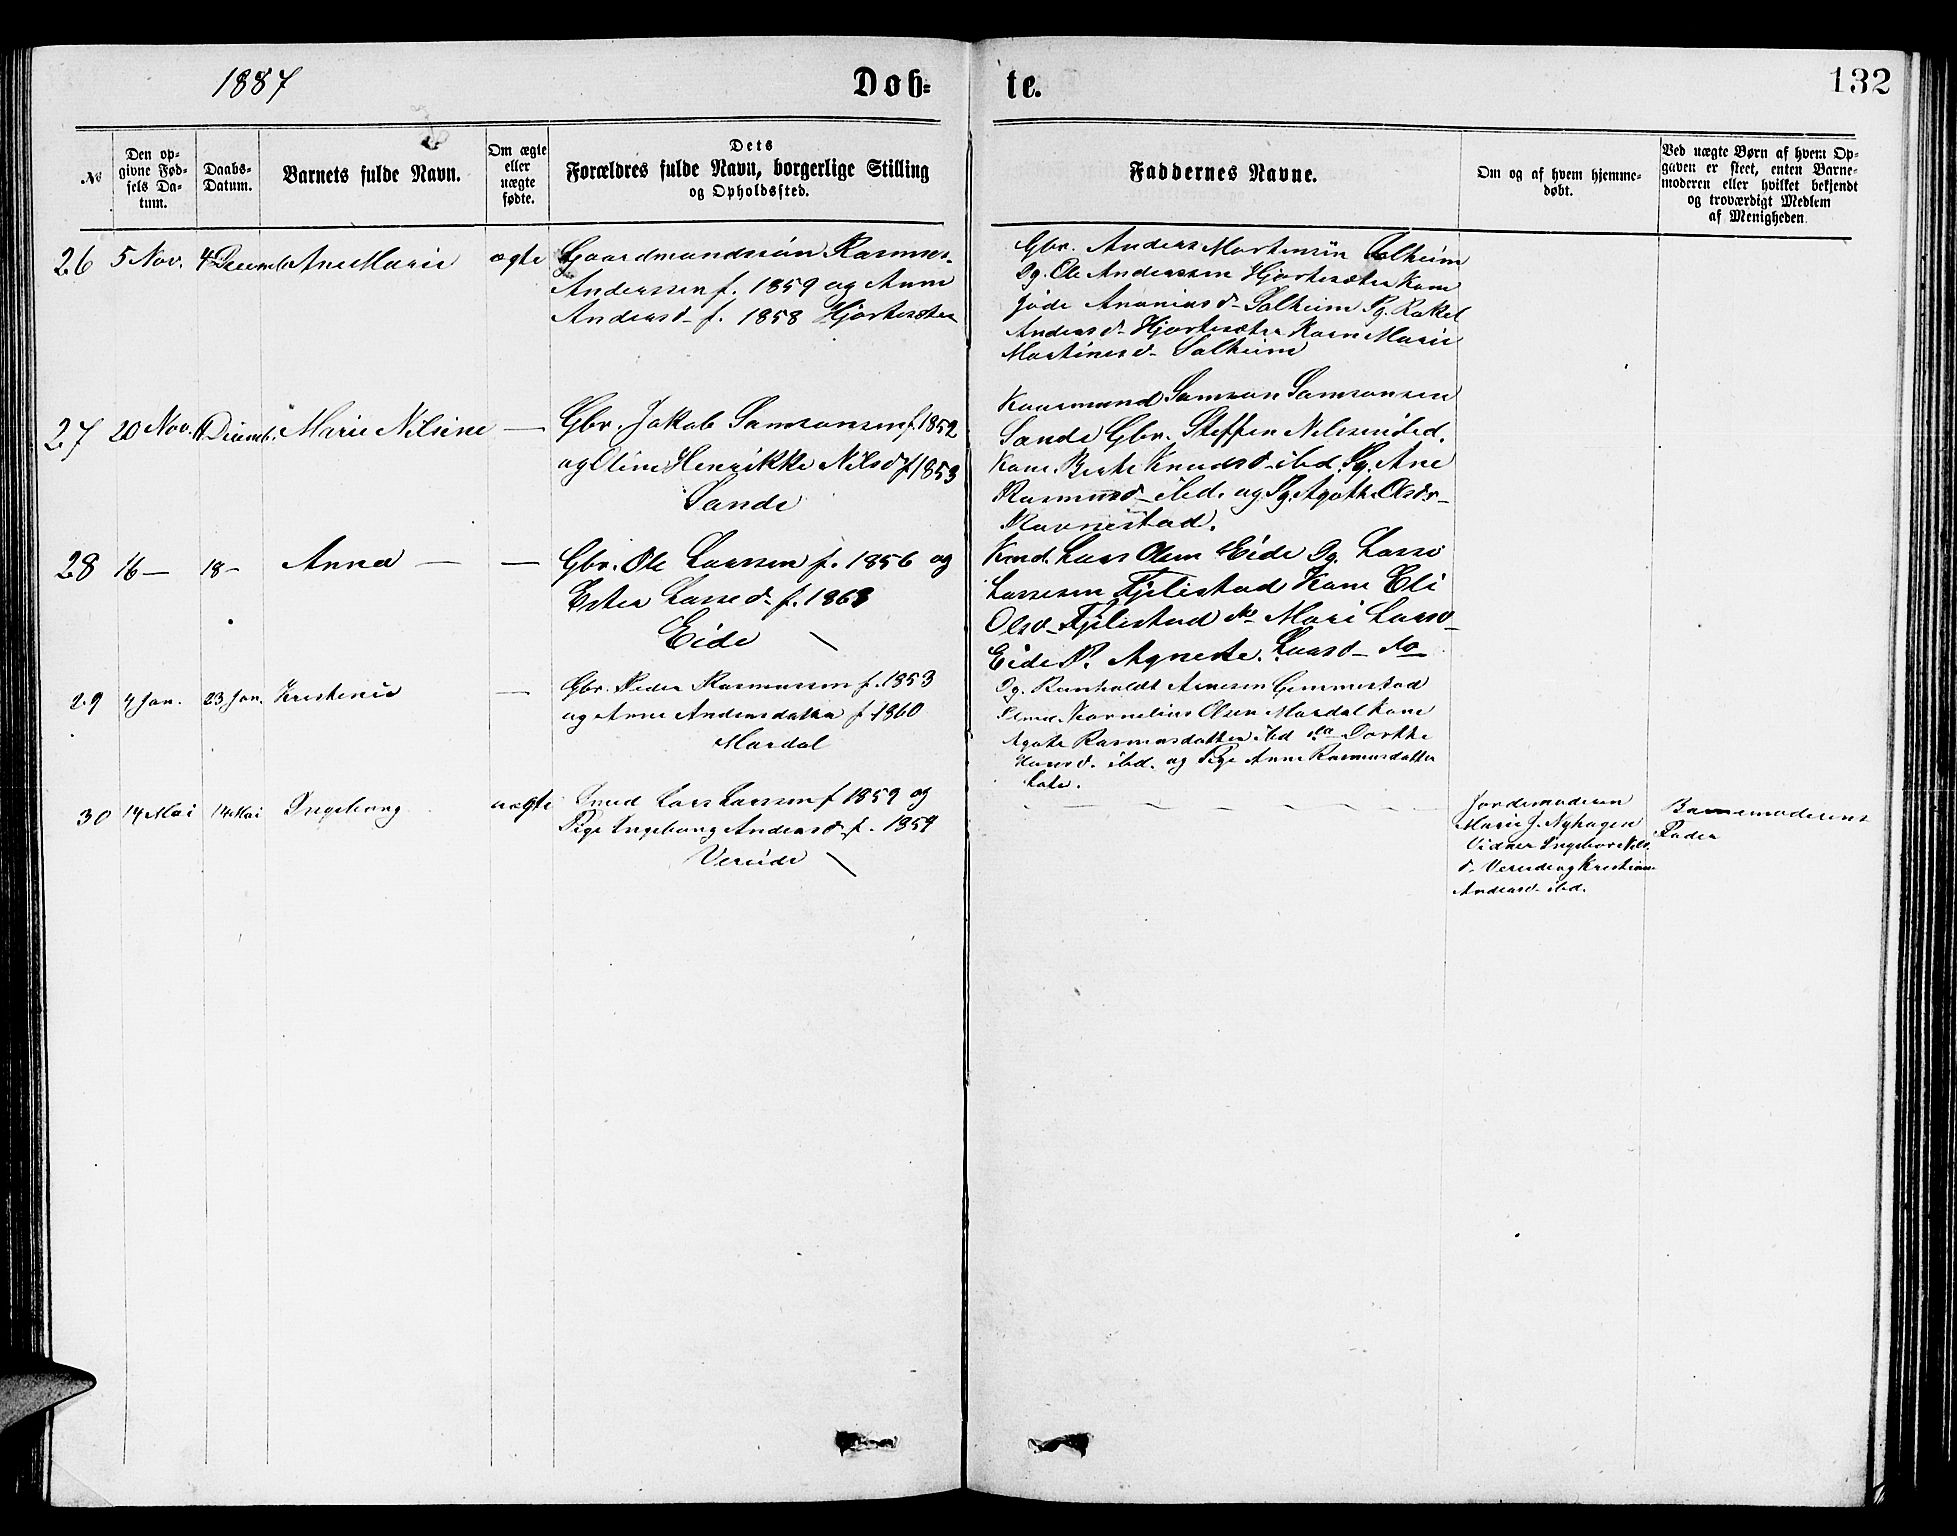 1887
Døb=
te.
132
№
Den op-
givne Fød-
sels Da-
tum.
Daabs-
Datum.
Barnets fulde Navn.
Om ægte
eller
uægte
fødte.
Dets
Forældres fulde Navn, borgerlige Stilling
og Opholdssted.
Faddernes Navne.
Om og af hvem hjemme-
døbt.
Ved uægte Børn af hvem Op-
gaven er skeet, enten Barne-
moderen eller hvilket bekjendt
og troværdigt Medlem
af Menigheden.
26 5 Nov. 4 Decemb Ane Marie ægte Gaardmandssøn Rasmus
Anderssen f. 1859 og Anne
Andersd- f. 1858 Hjortesæter
Gbr. Anders Mortensen Solheim
Og. Ole Anderssen Hjortesæter Kone
Ananiasd- Solheim Pg. Rakel
Andersd- Hjortesæter Karen Marie
Martinusd- Solheim
27 20 Nov. 11 Decemb. Marie Nilsine — Gbr. Jakob Samsonsen f. 1852
og Oline Henrikke Nilsd f 1853
Sande
Samson Samsonsen
Sande Gbr. Steffen Nilssen ibd.
Kone Berte Knudsd- ibd. Pg. Ane
Rasmusd- ibd. og Pg. Agathe Olsdr-
Ravnestad.
28 16 — 18 - Anna — — Gbr. Ole Larssen f. 1856 og
Ester Lassed- f. 1863
Eide
Kmd. Lars Olsen Eide Og. Lasse
Lassesen Fjelestad Kone Eli
Olsd- Fjelestad Mari Larsd-
Eide P. Agnete Larsd- do
29 4 Jan. 23 Jan. Kristense — Gbr. Peder Rasmussen f. 1853
og Anne Andersdatter f. 1860
Mardal
Og. Reinholdt Arnesen Gimmestad
Kornelius Olsen Mardal Kone
Agate Rasmusdatter ibd do Dorthe
Hansd. ibd. og Pige Anne Rasmusdatter
30 14 Mai 14 Mai Ingeborg uægte Lars Larssen f 1859 og
Pige Ingeborg Andersd- f. 1859
Vereide
Jordemoderen
Marie J. Nyhagen
Vidner Ingebor Nils
d- Vereide og Kristiane
Andersd- ibd.
Barnemoderens
Fader